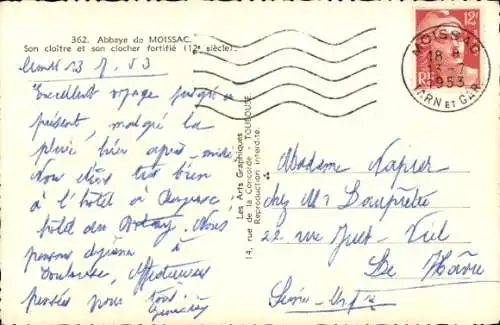 362. Abbaye de MOISSAC.
Son cloître et son clocher fortifié (12e siècle).
13 7 53
Excellent voyage jusqu'à
présent, malgré la
pluie hier après-midi
très bien
à l'hôtel à
hôtel du Nous
pensons à
Toulouse. Affectueuses
pensées pour tous
Les Arts Graphiques
14, rue de la Concorde - TOULOUSE
Reproduction interdite.
12F
RF
MOISSAC
18 H
13-7
1953
TARN ET GAR.
Madame Napier
chez Mr Douprêtre
22 rue Just-Viel
Le Hâvre
Seine-Infre